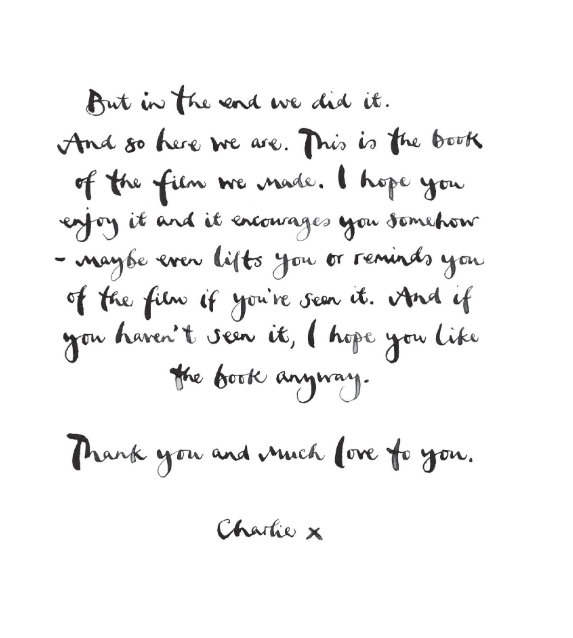 But in the end we did it.
And so here we are. This is the book
of the film we made. I hope you
enjoy it and it encourages you somehow
- maybe even lifts you or reminds you
of the film if you're seen it. And if
you haven't seen it, I hope you like
the book anyway.
Thank you and much love to you.
Charlie x